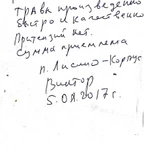 трава произведено
быстро и качественно
Притензий нет.
Сумма приемлема
п. Лисино-Корпус
Виктор
5.08.2017г.